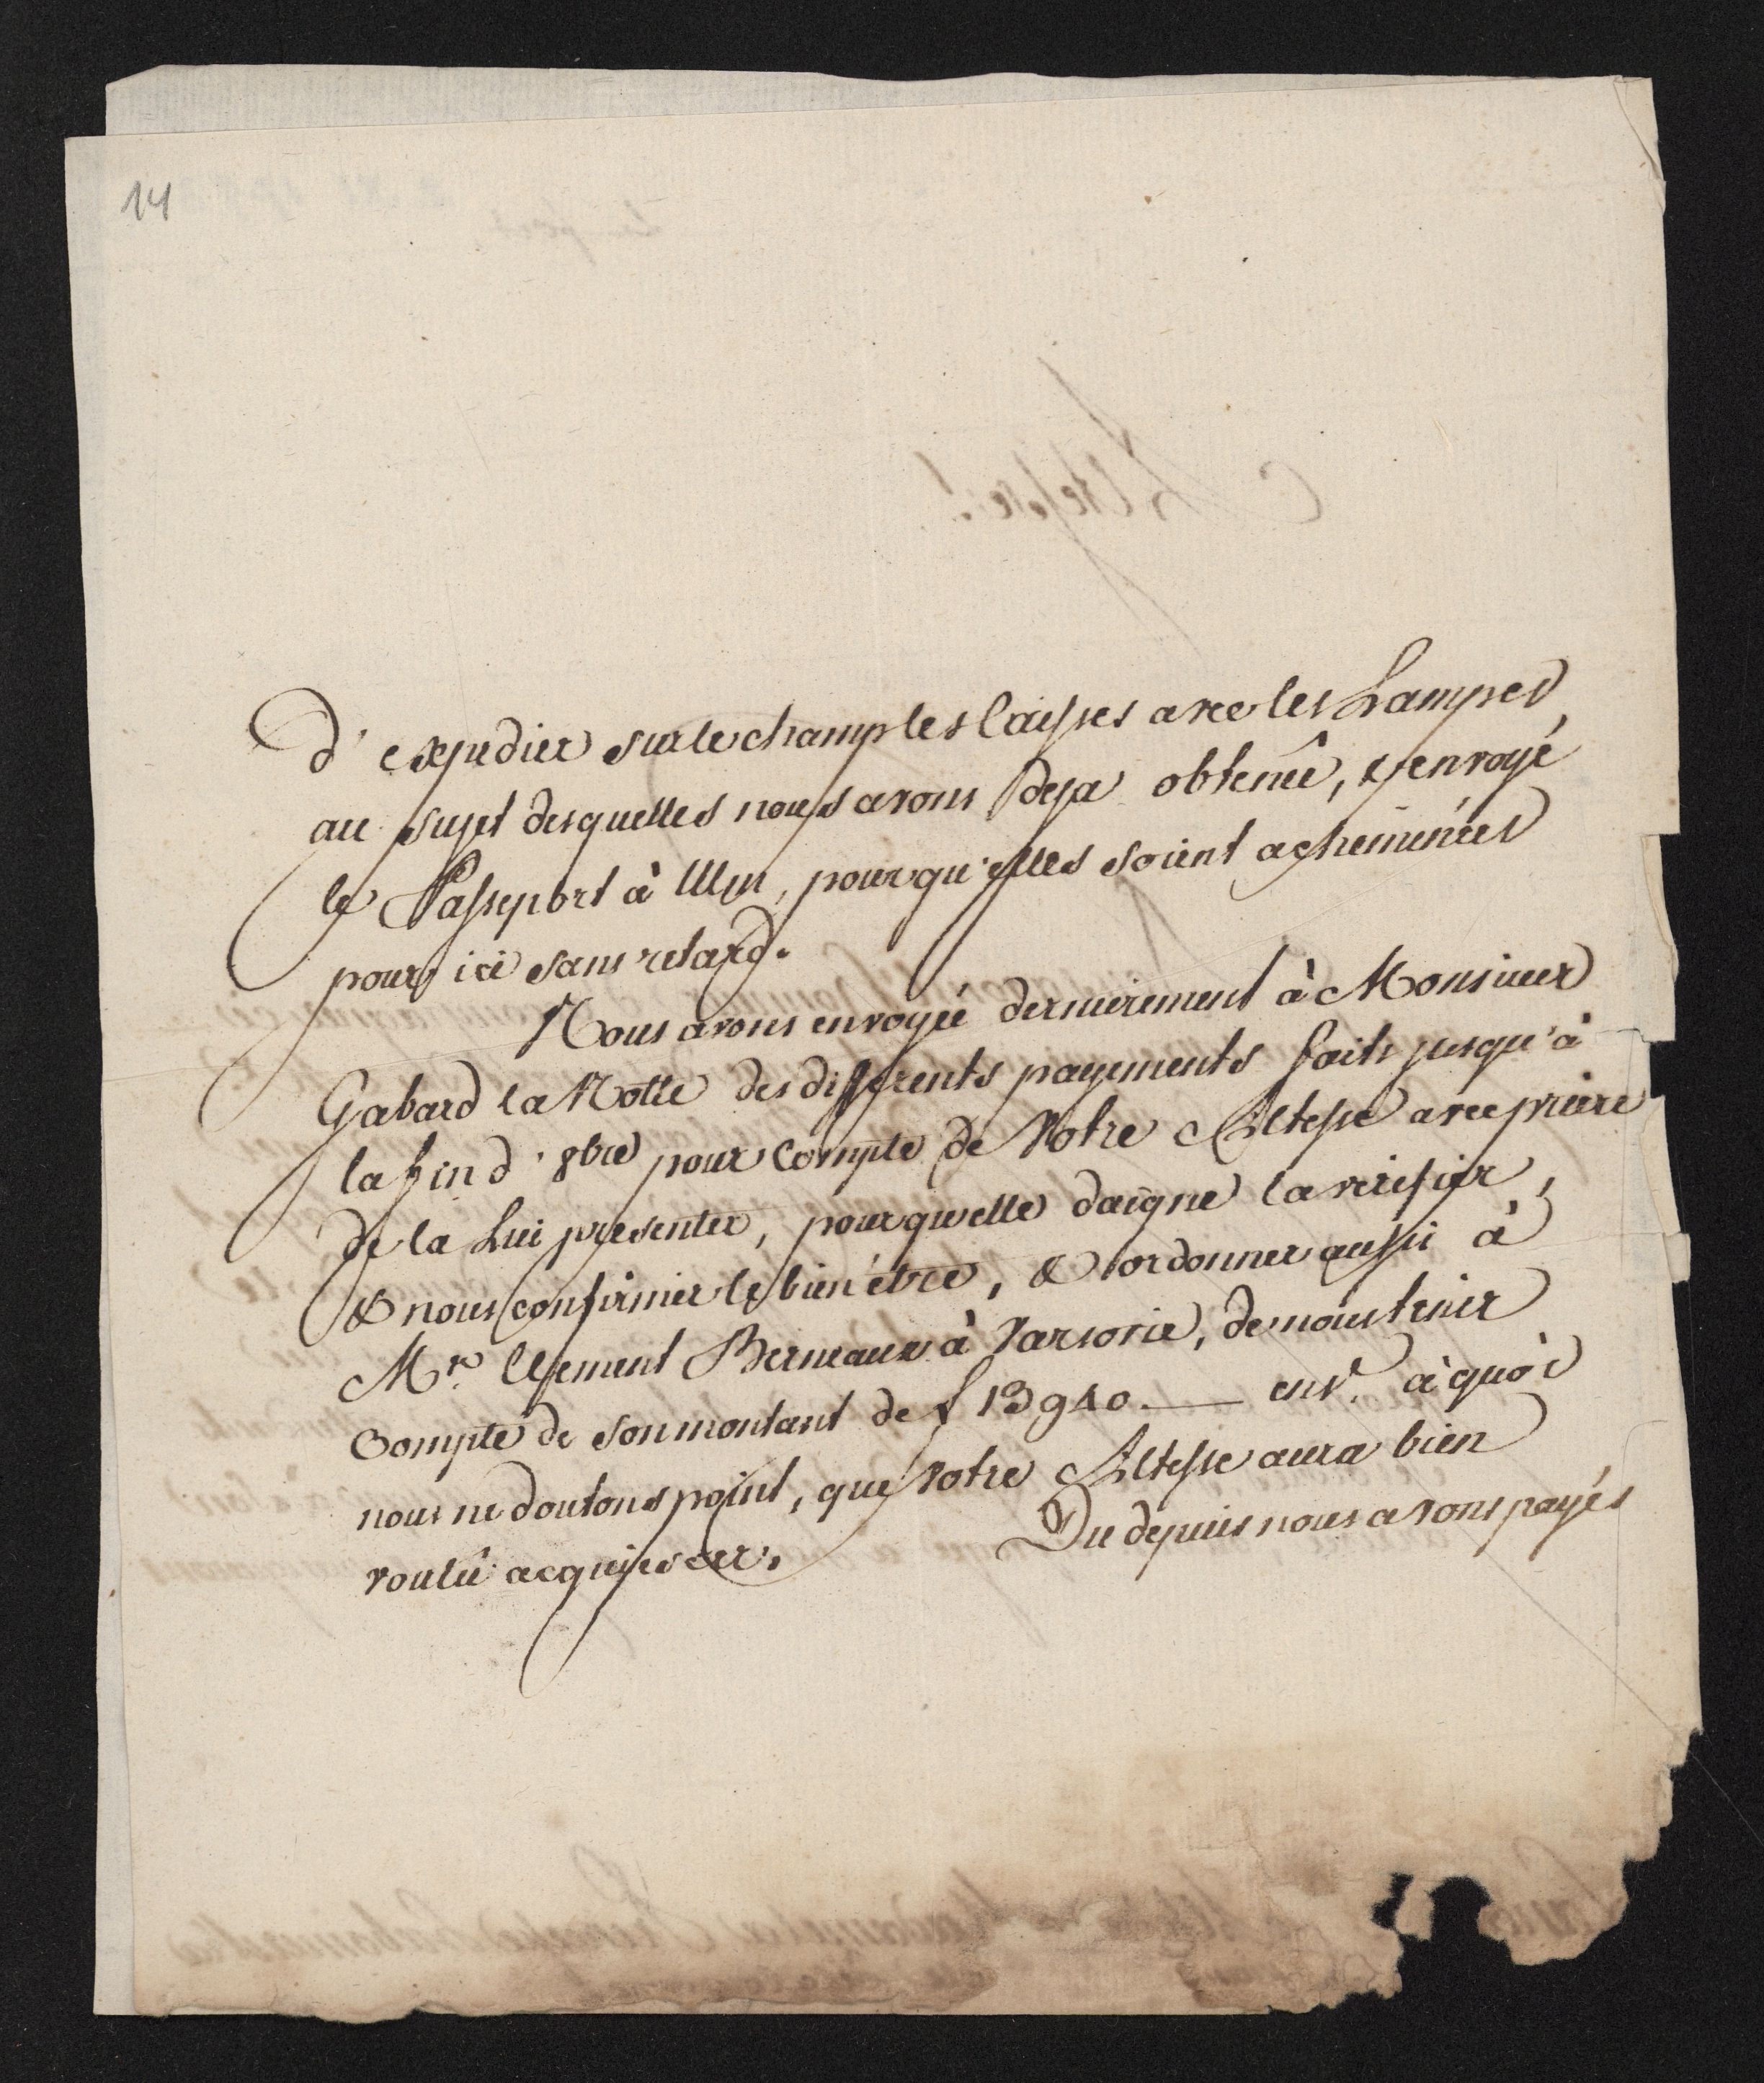 14
d'expedier sur le champ les Caisses avec les Lampes
au sujet desquelles nous avons deja obtenû, & envoyé
le Passeport à Ulm, pour qu'elles soient acheminées
pour ici sans retard.
Nous avons envoyée dernierement à Monsieur
Gabard la Notte des differents payements faits jusqu'à
la fin d'8bre pour Compte de Votre Altesse avec priere
de la Lui presenter, pour quelle daigne la verifier,
& nous confirmer le bien être, & ordonner aussi à
Mr. Clement Berneaux à Varsovie, de nous tenir
Compte de son montant de f 13940.— à quoi
nous ne doutons point, que Votre Altesse aura bien
voulû acquiescer.
Du depuis nous avons payés